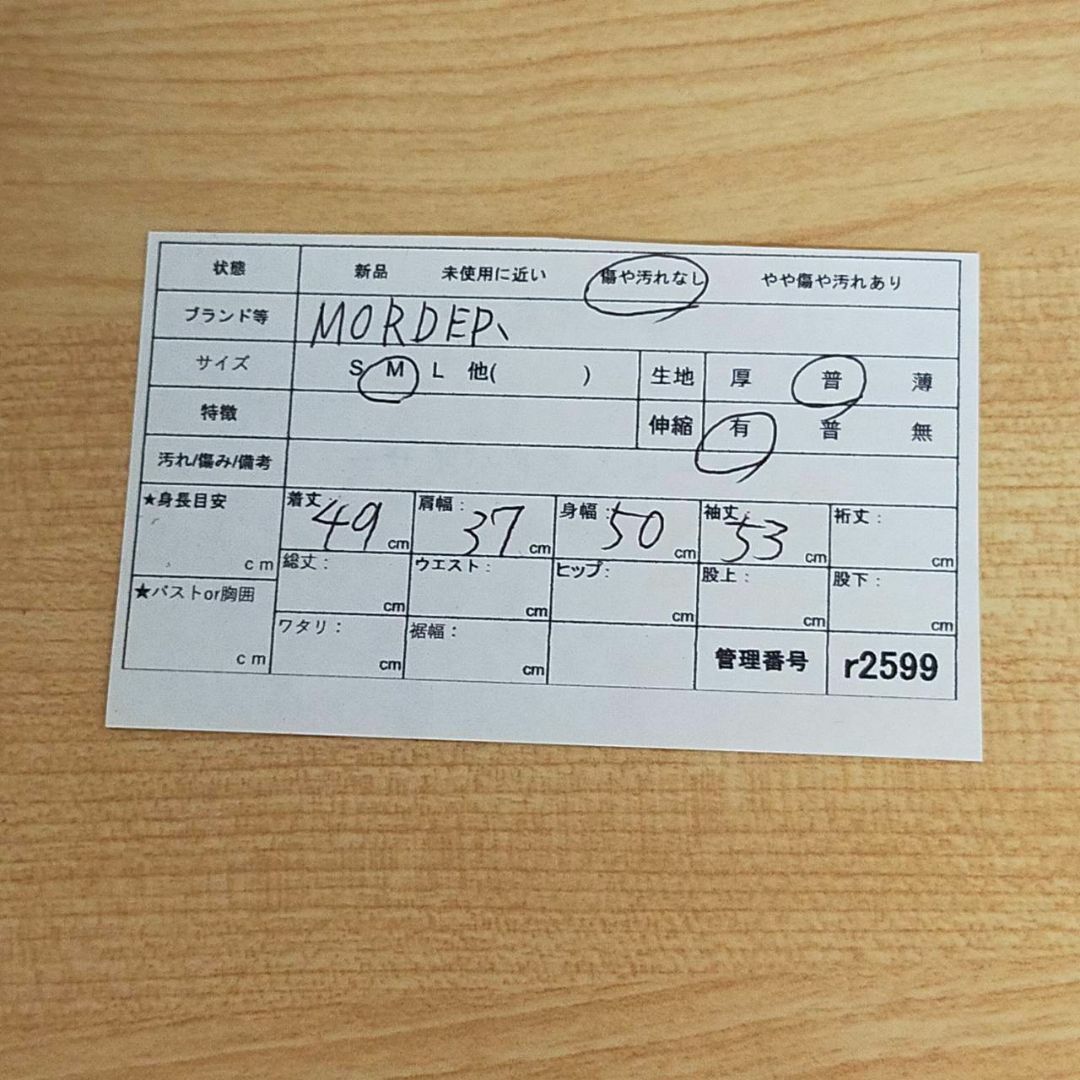 状態 新品 未使用に近い 傷や汚れなし やや傷や汚れあり
ブランド等 MORDEP、
サイズ S M L 他( ) 生地 厚 普 薄
特徴 伸縮 有 普 無
汚れ/傷み/備考
★身長目安 cm 着丈: 49 cm 肩幅: 37 cm 身幅: 50 cm 袖丈: 53 cm 裄丈: cm
総丈: cm ウエスト: cm ヒップ: cm 股上: cm 股下: cm
★バストor胸囲 cm ワタリ: cm 裾幅: cm 管理番号 r2599